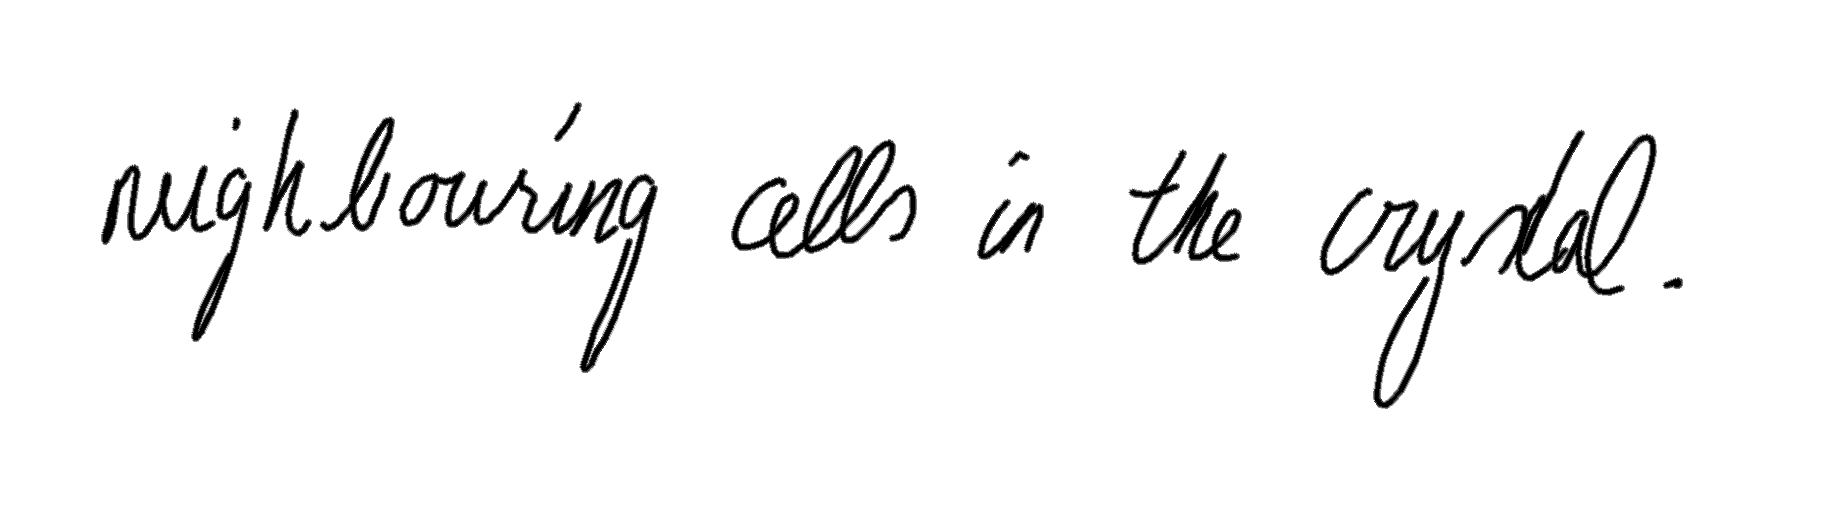 neighbouring cells in the crystal.